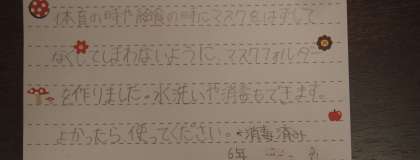 体育の時や給食の時にマスクをはずして
なくしてしまわないように、マスクフォルダー
を作りました。水洗いや消毒もできます。
よかったら使ってください。*消毒済み
6年